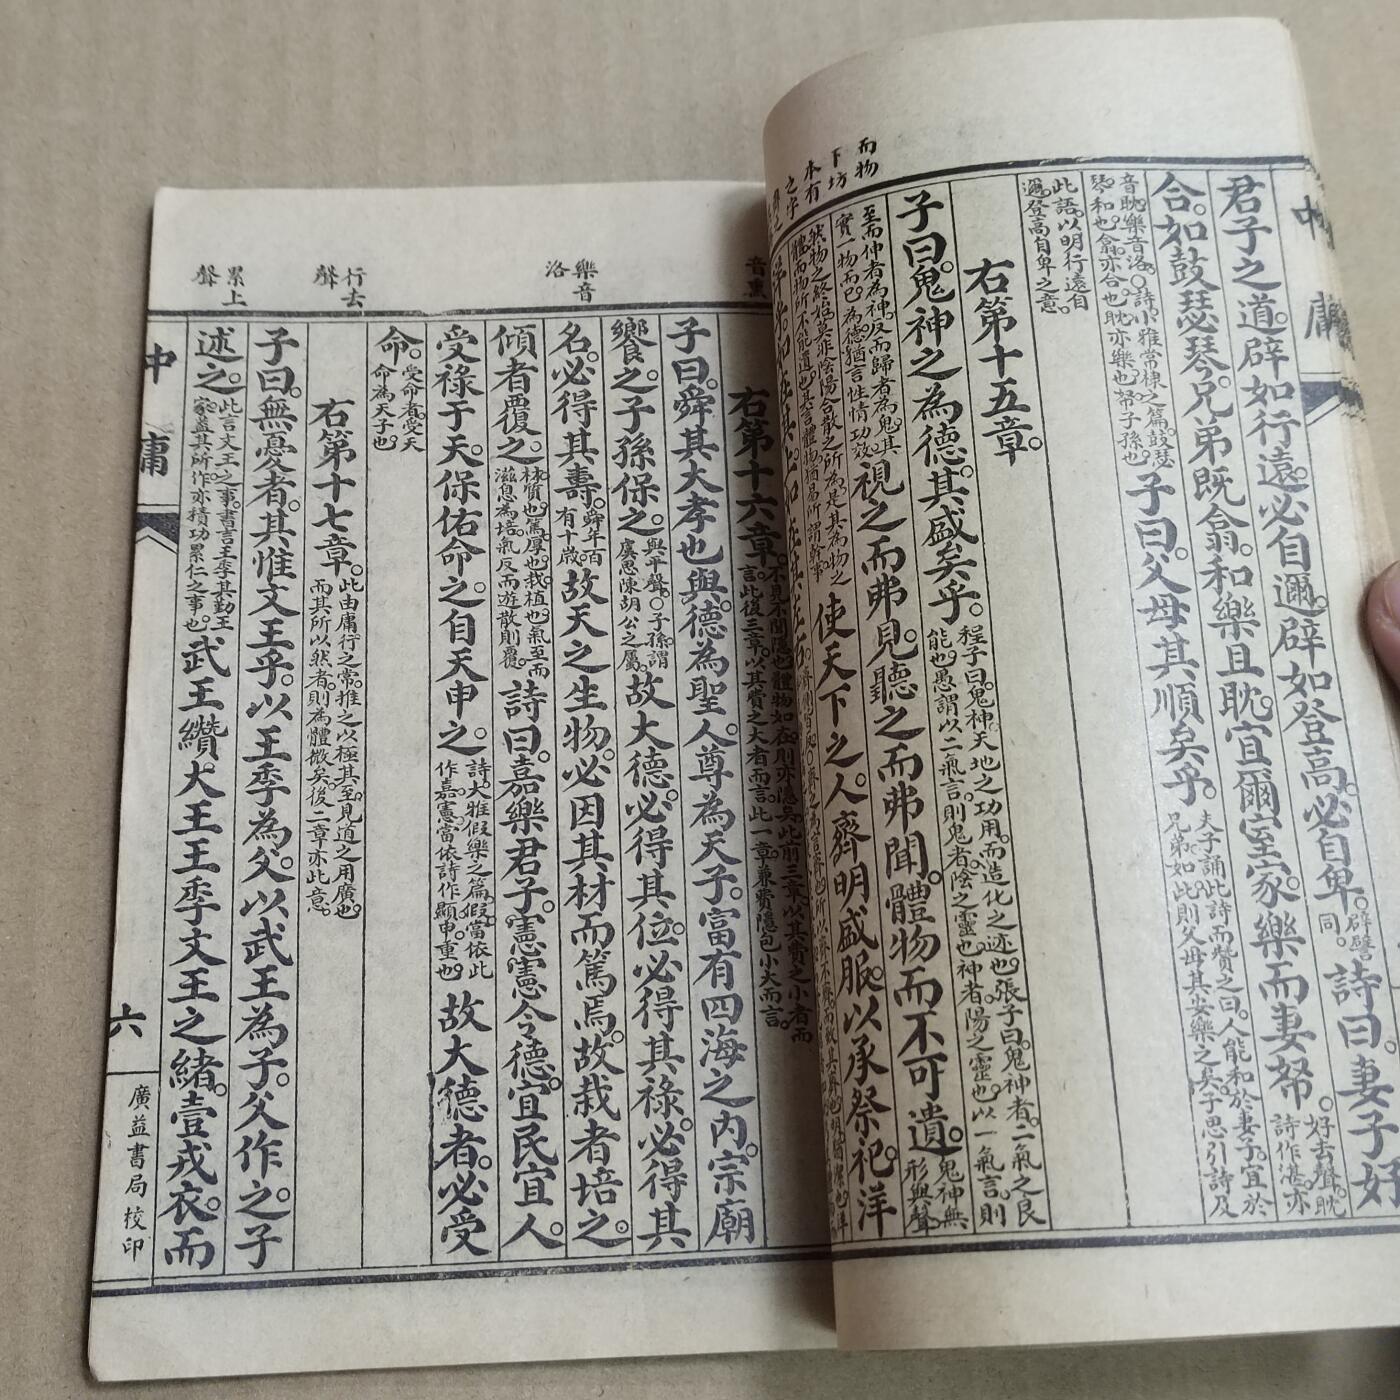 中庸
而物
下坊
本有
之字
君子之道。辟如行遠。必自邇。辟如登高。必自卑。辟譬同。詩曰。妻子好
合。如鼓瑟琴。兄弟既翕。和樂且耽。宜爾室家。樂而妻帑。好去聲。耽詩作湛。亦
音耽。樂音洛。○詩小雅常棣之篇。鼓瑟琴。和也。翕亦合也。耽亦樂也。帑子孫也。子曰。父母其順矣乎。夫子誦此詩而贊之曰。人能和於妻子。宜於兄弟如此。則父母其安樂之矣。子思引詩及
此語。以明行遠自邇。登高自卑之意。
右第十五章。
子曰。鬼神之為德。其盛矣乎。程子曰。鬼神天地之功用。而造化之迹也。張子曰。鬼神者。二氣之良能也。愚謂以二氣言。則鬼者。陰之靈也。神者。陽之靈也。以一氣言。則
至而伸者為神。反而歸者為鬼。其實一物而已。為德。猶言性情功效視之而弗見。聽之而弗聞。體物而不可遺。鬼神無形與聲
然物之終始。莫非陰陽合散之所為。是其為物之體。而物所不能遺也。其言體物。猶易所謂幹事使天下之人。齊明盛服。以承祭祀。洋
音熏
樂音
洛
行去
聲
累上
聲
右第十六章。不見不聞。隱也。體物如在。則亦費矣。此前三章。以其費之小者而言。此後三章。以其費之大者而言。此一章。兼費隱包小大而言。
子曰。舜其大孝也與。德為聖人。尊為天子。富有四海之內。宗廟
饗之。子孫保之。與平聲。○子孫謂虞思陳胡公之屬。故大德。必得其位。必得其祿。必得其
名。必得其壽。舜年百有十歲。故天之生物。必因其材而篤焉。故栽者培之。
傾者覆之。材。質也。篤。厚也。栽。植也。氣至而滋息為培。氣反而遊散則覆。詩曰。嘉樂君子。憲憲令德。宜民宜人。
受祿于天。保佑命之。自天申之。詩大雅假樂之篇。假當依此作嘉。憲當依詩作顯。申。重也。故大德者。必受
命。受命者。受天命為天子也。
右第十七章。此由庸行之常。推之以極其至。見道之用廣也。而其所以然者。則為體微矣。後二章亦此意。
子曰。無憂者。其惟文王乎。以王季為父。以武王為子。父作之。子
述之。此言文王之事。書言王季其勤王家。蓋其所作。亦積功累仁之事也。武王纘大王王季文王之緒。壹戎衣。而
中庸
六
廣益書局校印